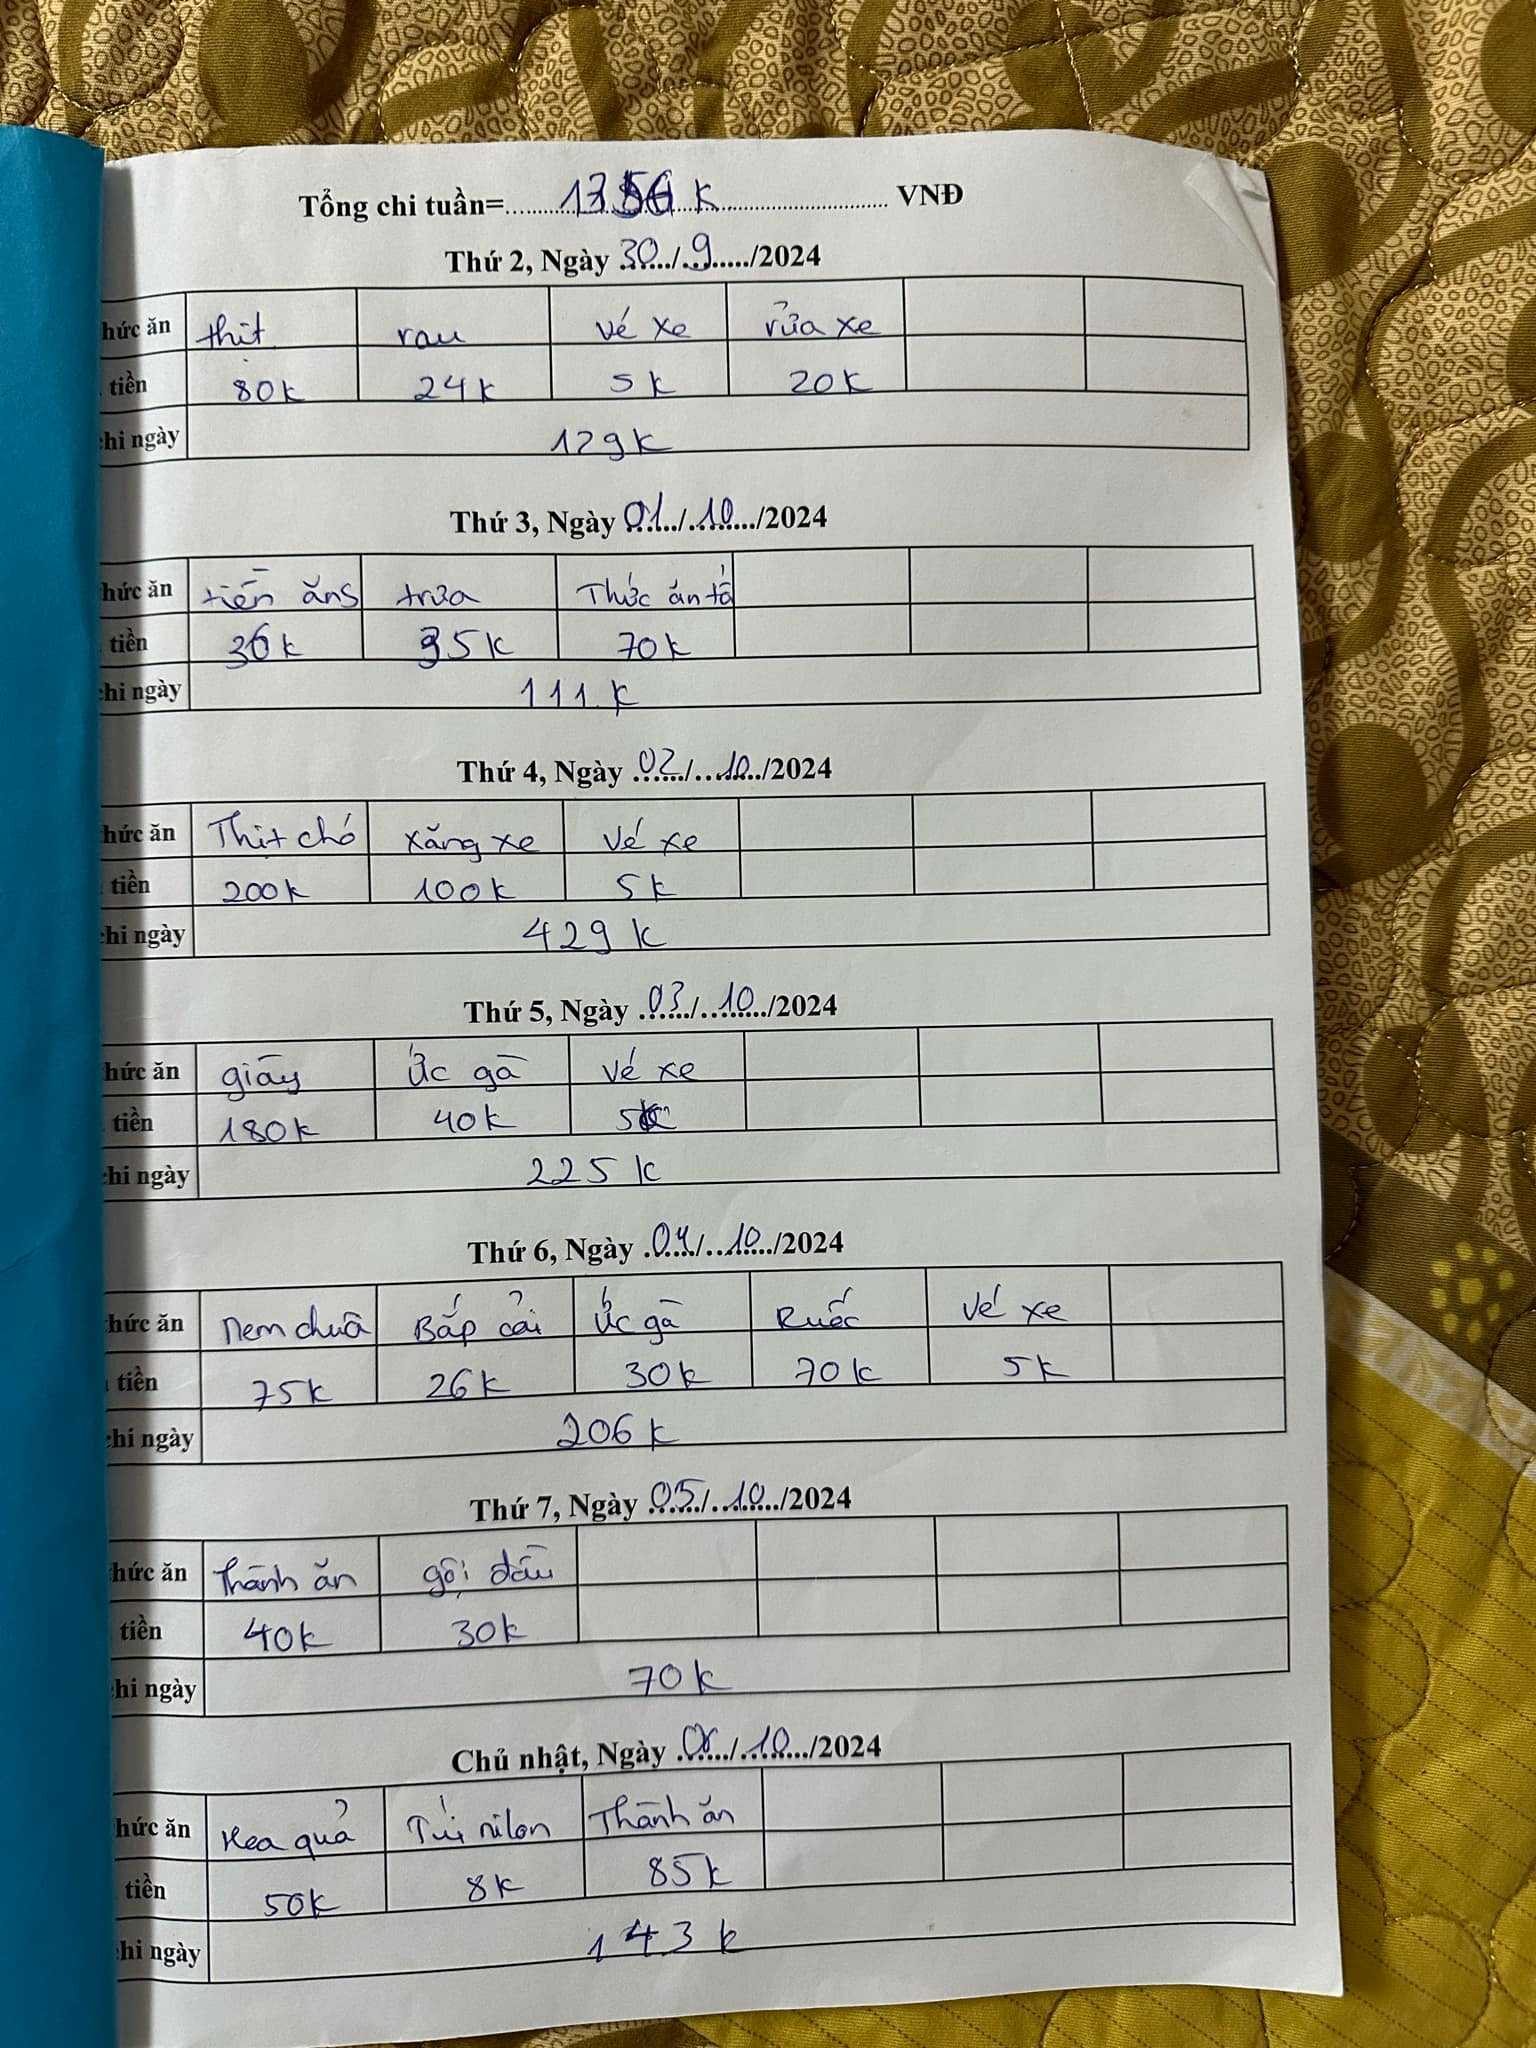 Tổng chi tuần=........... k ........... VNĐ
Thứ 2, Ngày 30/9/2024
hức ăn thịt rau vé xe rửa xe
tiền 80k 24k 5k 20k
hi ngày 129k
Thứ 3, Ngày 01/10/2024
hức ăn tiền ăns trưa Thức ăn tả
tiền 36k 35k 70k
hi ngày 111k
Thứ 4, Ngày 02/10/2024
hức ăn Thịt chó xăng xe vé xe
tiền 200k 100k 5k
hi ngày 429k
Thứ 5, Ngày 03/10/2024
hức ăn giấy Ức gà vé xe
tiền 180k 40k 5k
hi ngày 225k
Thứ 6, Ngày 04/10/2024
hức ăn Nem chua Bắp cải Ức gà Ruốc vé xe
tiền 75k 26k 30k 70k 5k
hi ngày 206k
Thứ 7, Ngày 05/10/2024
hức ăn Thành ăn gội đầu
tiền 40k 30k
hi ngày 70k
Chủ nhật, Ngày 06/10/2024
hức ăn Hoa quả Túi nilon Thành ăn
tiền 50k 8k 85k
hi ngày 143k